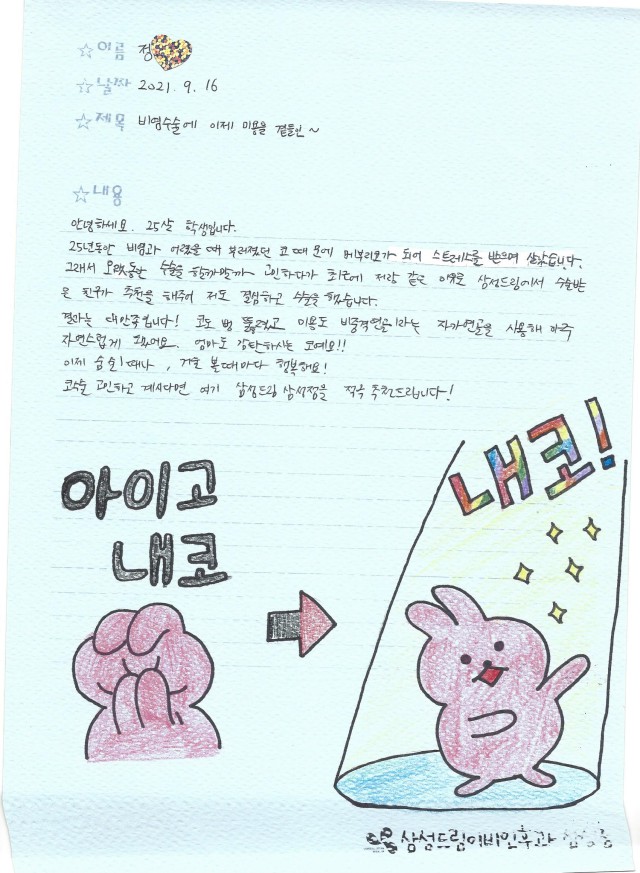 ☆이름 정
☆날짜 2021. 9. 16
☆제목 비염수술에 이제 미용을 곁들인~
☆내용
안녕하세요. 25살 학생입니다.
25년동안 비염과 어렸을 때 부러졌던 코 때문에 메부리코가 되어 스트레스를 받으며 살았습니다.
그래서 오랫동안 수술을 할까말까 고민하다가 최근에 저랑 같은 이유로 삼성드림에서 수술받
은 친구가 추천을 해주어 저도 결심하고 수술을 했습니다.
결과는 대만족입니다! 코도 뻥 뚫렸고 미용도 비중격연골이라는 자가연골을 사용해 아주
자연스럽게 됐어요. 엄마도 감탄하시는 코예요!!
이제 숨쉴때나, 거울 볼때마다 행복해요!
코수술 고민하고 계시다면 여기 삼성드림 삼성점을 적극 추천드립니다!
아이고
내코
내코!
삼성드림이비인후과